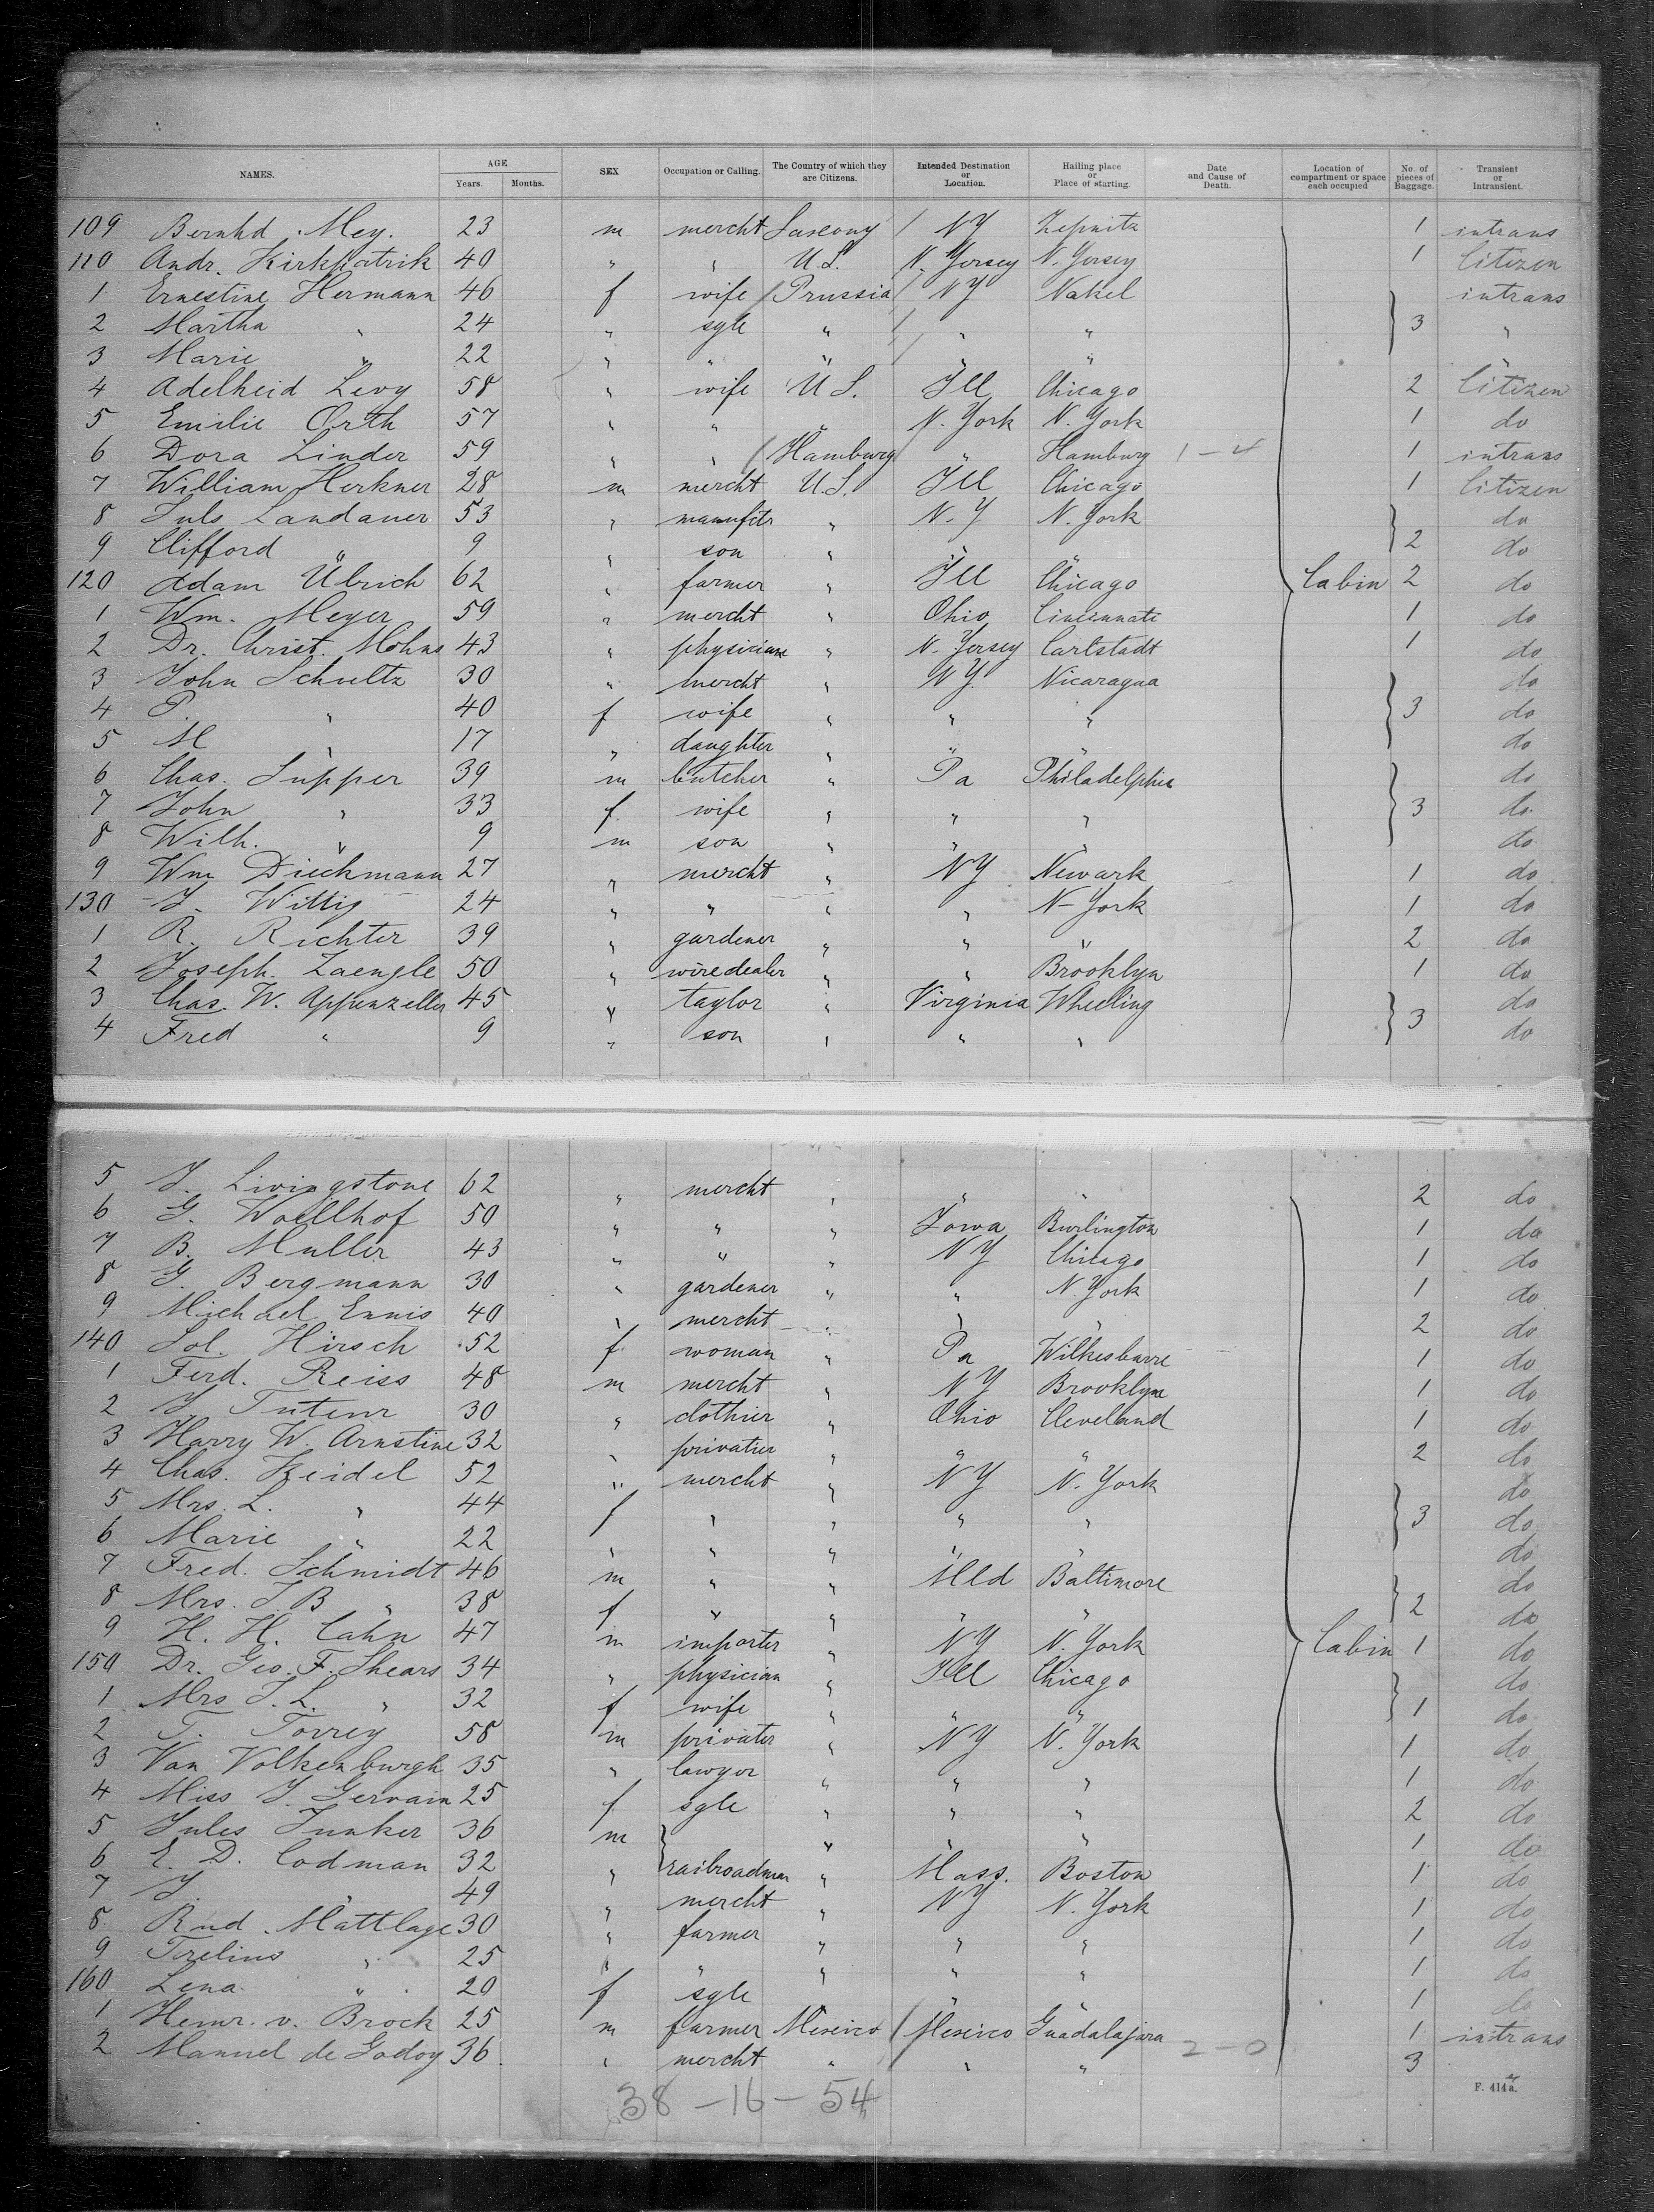 NAMES. AGE Years. Months. SEX Occupation or Calling. The Country of which they are Citizens. Intended Destination or Location. Hailing place or Place of starting. Date and Cause of Death. Location of compartment or space each occupied No. of pieces of Baggage. Transient or Intransient.
109 Bernhd. Mey. 23 m mercht Saxony / NY 1 intrans
110 Andr. Kirkpatrik 40 " " U.S. N. Jersey N. Jersey 1 Citizen
1 Ernestine Hermann 46 f wife / Prussia / NY Nakel intrans
2 Martha " 24 " sgle " / " " 3 "
3 Marie " 22 " " " / " " "
4 Adelheid Levy 58 " wife U.S. Ill Chicago 2 Citizen
5 Emilie Orth 57 " " " N. York N. York 1 do
6 Dora Linder 59 " " / Hamburg " Hamburg 1-4 1 intrans
7 William Herkner 28 m mercht U.S. Ill Chicago 1 Citizen
8 Juls Landauer 53 " manufctr " N.Y N. York do
9 Clifford " 9 " son " " " 2 do
120 Adam Ulrich 62 " farmer " Ill Chicago Cabin 2 do
1 Wm. Meyer 59 " mercht " Ohio Cincinnati 1 do
2 Dr. Christ. Mohns 43 " physician " N. Jersey Carlstadt 1 do
3 John Schultz 30 " mercht " NY. Nicaragua do
4 P. " 40 f wife " " " 3 do
5 M " 17 " daughter " " " do
6 Chas. Supper 39 m butcher " Pa Philadelphia do
7 John " 33 f wife " " " 3 do.
8 Wilh. " 9 m son " " " do
9 Wm Dieckmann 27 " mercht " NY Newark 1 do
130 J. Wittig 24 " " " " N-York 1 do
1 R. Richter 39 " gardener " " " 2 do
2 Joseph. Zaengle 50 " wiredealer " " Brooklyn 1 do
3 Chas. W. Appenzeller 45 " taylor " Virginia Wheeling do
4 Fred " 9 " son " " " 3 do
5 J. Livingstone 62 " mercht " " " 2 do
6 G. Woellhof 50 " " " Iowa Burlington 1 do
7 B. Muller 43 " " " NY Chicago 1 do
8 G. Bergmann 30 " gardener " " N. York 1 do
9 Michael Ennis 40 " mercht " " " 2 do
140 Sol. Hirsch 52 f woman " Pa Wilkesbarre 1 do
1 Ferd. Reiss 48 m mercht " NY Brooklyn 1 do
2 J Tuteur 30 " clothier " Ohio Cleveland 1 do
3 Harry W. Arnstine 32 " privatier " " " 2 do
4 Chas. Keidel 52 " mercht " NY N. York do
5 Mrs. L. " 44 f " " " " 3 do
6 Marie " 22 " " " " " do
7 Fred. Schmidt 46 m " " Md Baltimore do
8 Mrs. J. B " 38 f " " " " 2 do
9 H. H. Cahn 47 m importer " NY N. York Cabin 1 do
150 Dr. Geo. F. Shears 34 " physician " Ill Chicago do
1 Mrs J. L. " 32 f wife " " " 1 do
2 T. Torrey 58 m privater " NY N. York 1 do
3 Van Volkenburgh 35 " lawyer " " " 1 do
4 Miss J. Gervain 25 f sgle " " " 2 do
5 Jules Junker 36 m " " " 1 do
6 E. D. Codman 32 " railroadman " Mass. Boston 1 do
7 J. " 49 " mercht " NY N. York 1 do
8 Rud. Mattlage 30 " farmer " " " 1 do
9 " 25 " " " " " 1 do
160 Lena " 20 f sgle " " " 1 do
1 Heinr. v. Brock 25 m farmer Mexico / Mexico Guadalajara 1 intrans
2 Manuel de Godoy 36 " mercht " / " " 2-0 3 "
38-16-54
F. 414 a.